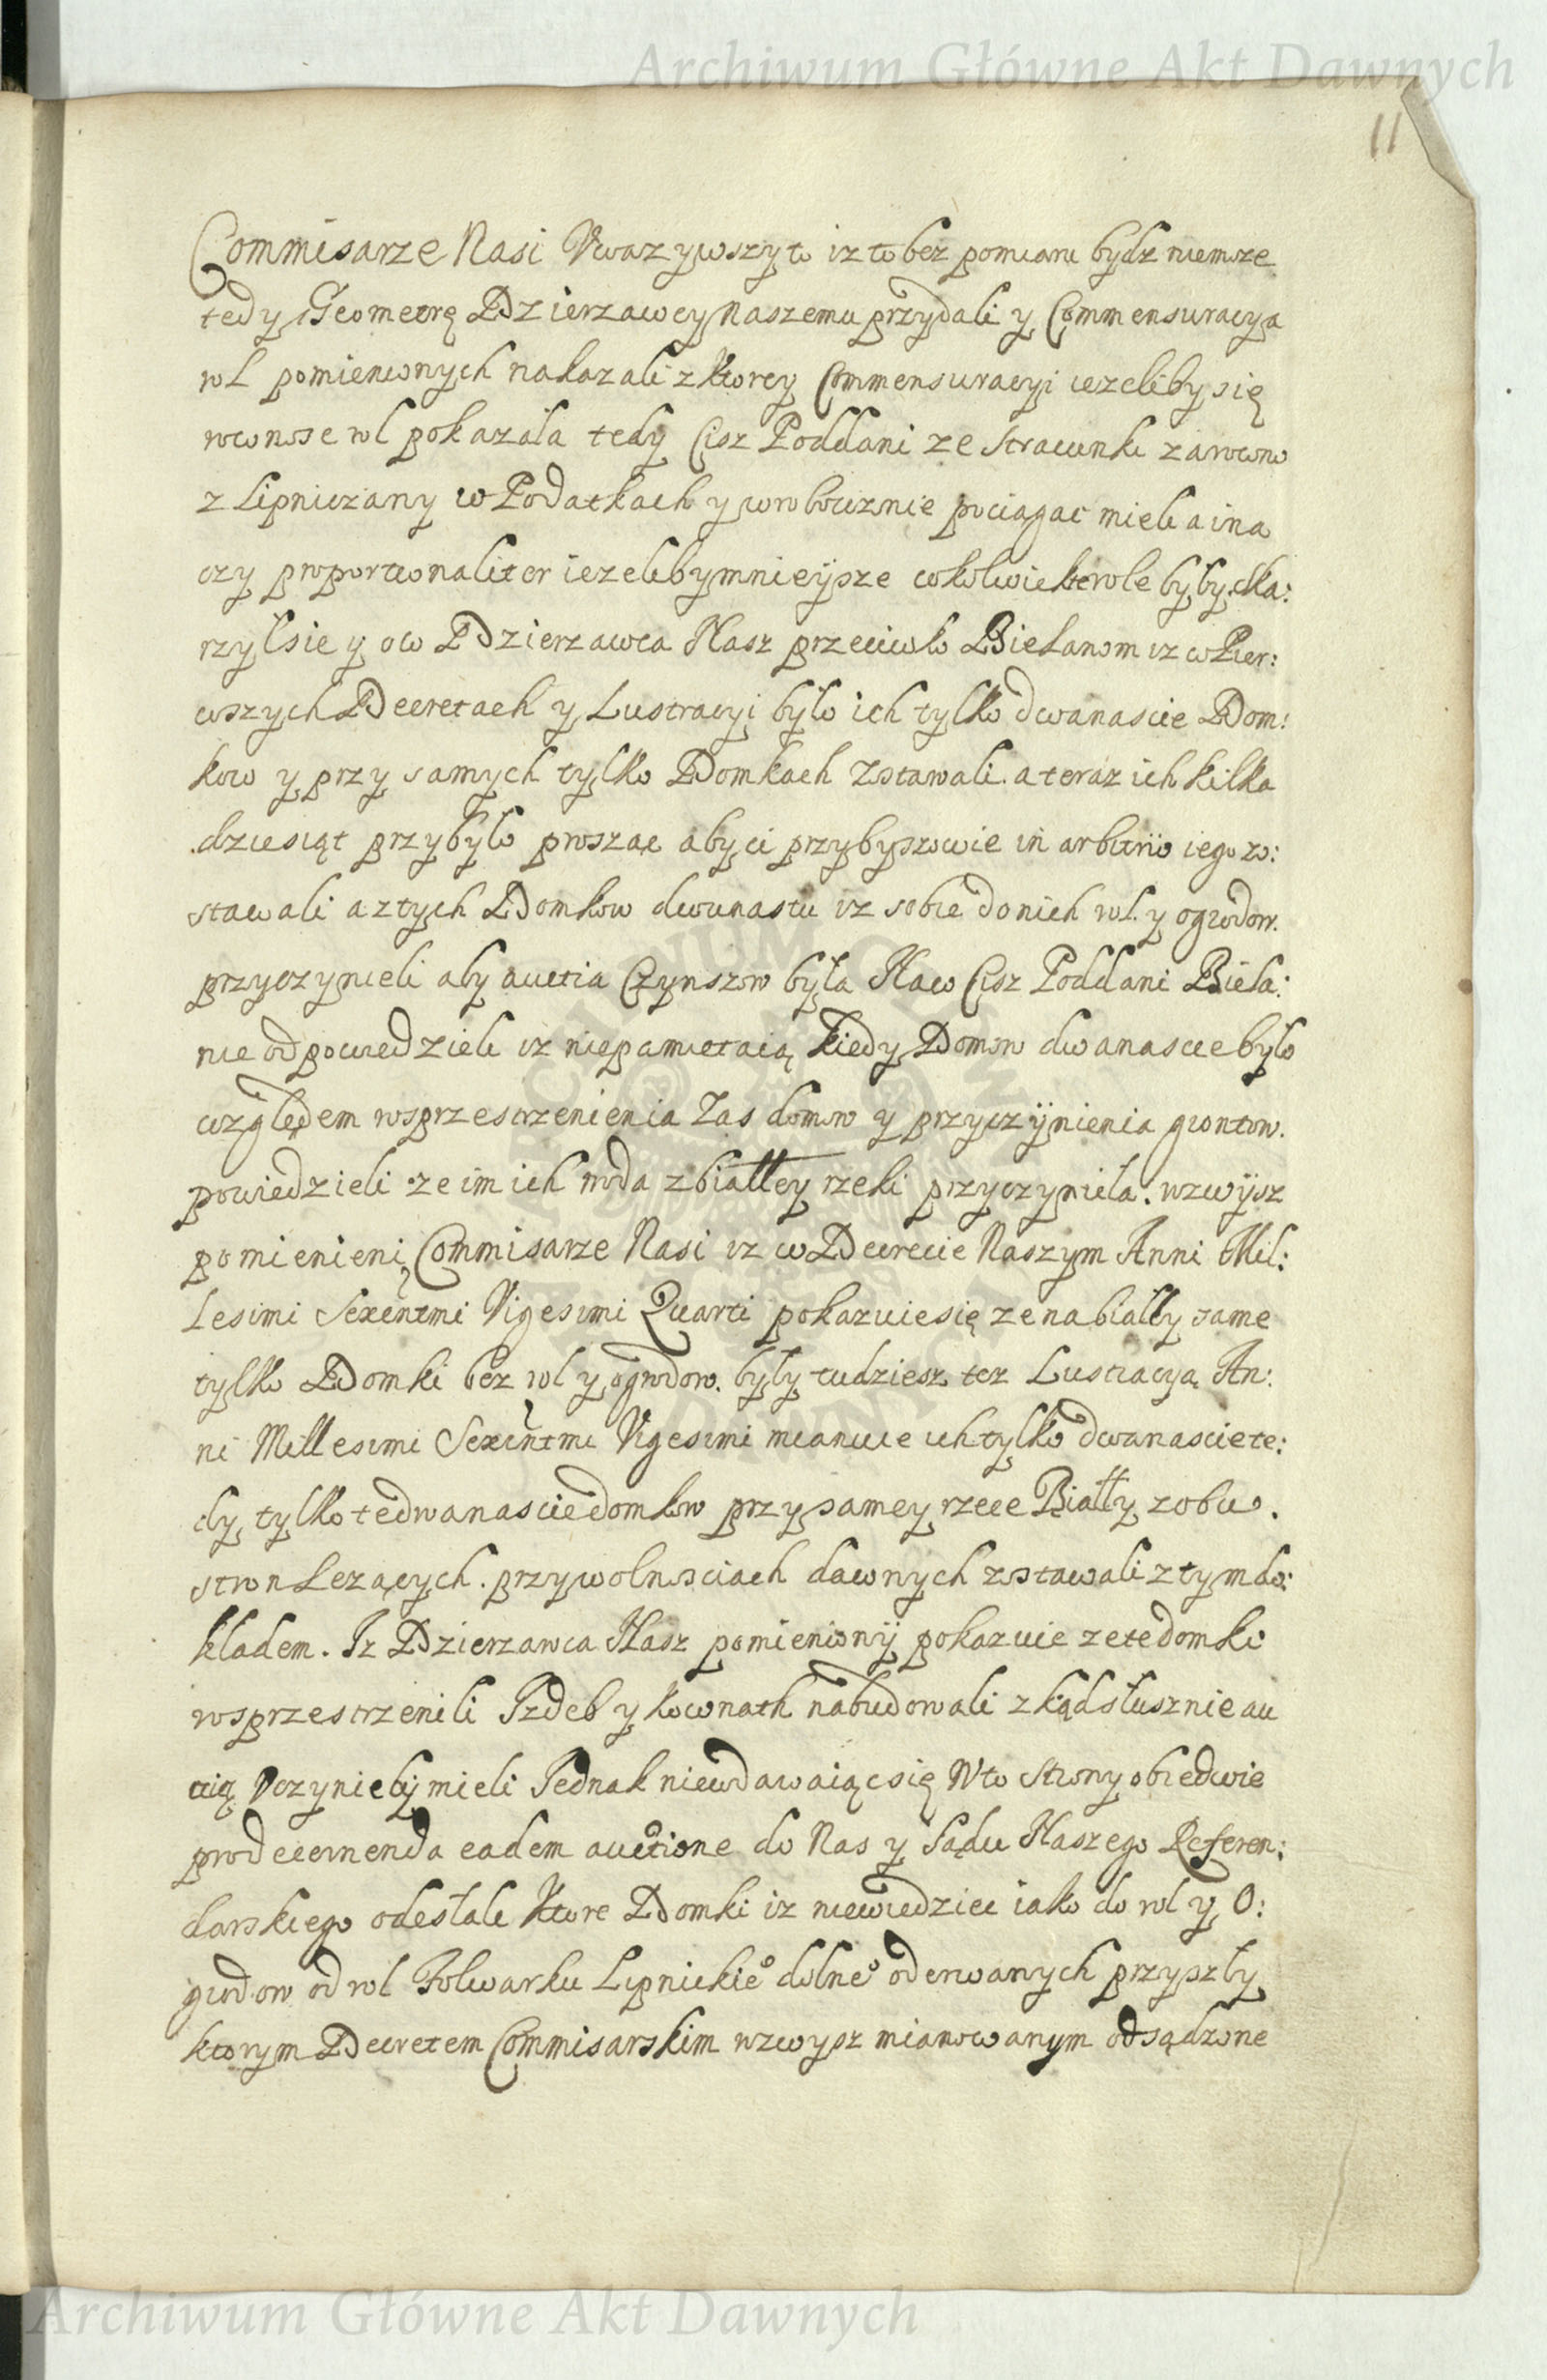 Archiwum Główne Akt Dawnych
11
Commisarze Nasi Uwazywszy to iz to bez pomiaru bydz niemoze
tedy Geometrę Dzierzawcy Naszemu przydali y Commensuracyą
rol pomienionych nakazali z ktorey Commensuracyi iezeliby się
rownose rol pokazala tedy Cisz Poddani ze Stracunki zarowno
z Lipniczany w Podatkach y wrobociznie pociągac mieli a ina
czy proportionaliter iezeliby mnieysze cokolwiek role byly. Ska:
rzyl sie y ow Dzierzawca Nasz przeciwko Bielanom iz w Pier:
wszych Decretach y Lustracyi bylo ich tylko dwanascie Dom:
kow y przy samych tylko Domkach Zostawali. a teraz ich kilka
dziesiąt przybylo prosząc aby ci przybyszowie in arbitrio iego zo:
stawali a z tych Domkow dwunastu iz sobie do nich rol y ogrodow.
przyczynieli aby auctia Czynszow była Naco Cisz Poddani Biela:
nie odpowiedzieli iz niepamietaią kiedy Domow dwanascie bylo
względem rosprzestrzenienia Zas domow y przyczynienia grontow.
powiedzieli ze im ich woda z białłey rzeki przyczyniła. wzwysz
pomienieni Commisarze Nasi iz w Decrecie Naszym Anni Mil:
Lesimi Sexentmi Vigesimi Quarti pokazuie się ze na białły same
tylko Domki bez rol y ogrodow. były tudziesz tez Lustracyą An:
ni Millesimi Sexentmi Vigesimi mianuie ich tylko dwanascie te:
dy tylko te dwanascie domkow przy samey rzece Białły z obu.
stron Lezących. przy wolnosciach dawnych zostawali z tym do:
kladem. Iz Dzierzawca Nasz pomieniony pokazuie ze te domki
rosprzestrzenili Izdeb y kownath nabudowali zkąd słusznie au
ctią Uczynicby mieli Jednak niewdawaiąc się W to Strony obiedwie
pro decernenda eadem auctione do Nas y Sądu Naszego Referen:
darskiego odesłali Ktore Domki iz niewiedziec iako do rol y O:
grodow od rol Folwarku Lipnickie° dolne° oderwanych przyszly
ktorym Decretem Commisarskim wzwysz mianowanym odsądzone
Archiwum Główne Akt Dawnych